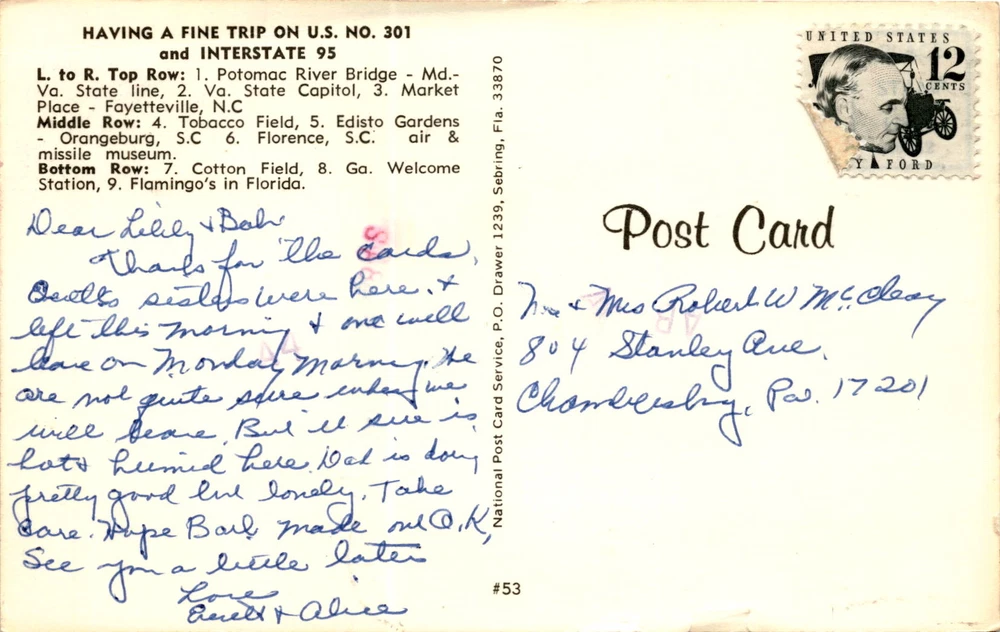 HAVING A FINE TRIP ON U.S. NO. 301
and INTERSTATE 95
L. to R. Top Row: 1. Potomac River Bridge - Md.-
Va. State line, 2. Va. State Capitol, 3. Market
Place - Fayetteville, N.C
Middle Row: 4. Tobacco Field, 5. Edisto Gardens
- Orangeburg, S.C 6. Florence, S.C. air &
missile museum.
Bottom Row: 7. Cotton Field, 8. Ga. Welcome
Station, 9. Flamingo's in Florida.
Dear & Bob
Thanks for the cards,
sisters were here &
left this morning & one will
leave on Monday morning. We
are not quite sure when we
will leave. But it sure is
hot & humid here. Dad is doing
pretty good but lonely. Take
care. Hope Barb made out O.K,
See you a little later
Love
Everett & Alice
National Post Card Service, P.O. Drawer 1239, Sebring, Fla. 33870
#53
UNITED STATES
12
CENTS
Y FORD
Post Card
Mr & Mrs Robert W McCleary
804 Stanley Ave.
Chambersburg, Pa. 17201